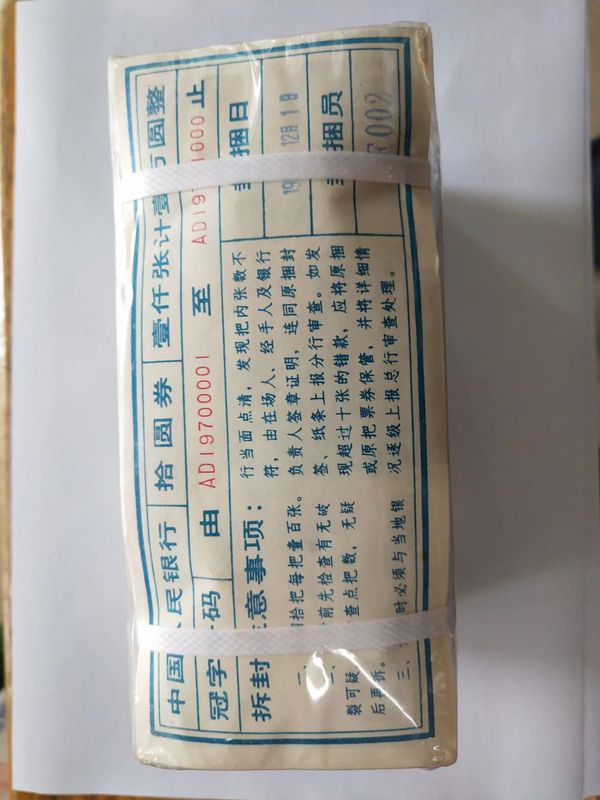 中国人民银行 拾圆券 壹仟张计壹万圆整
冠字号码 由 AD19700001 至 AD19701000 止
拆封注意事项:
一、
捆拾把每把壹百张。
二、
前先检查有无破
裂可疑
查点把数，无疑
后再拆。
三、
时必须与当地银
行当面点清，发现把内张数不
符，由在场人、经手人及银行
负责人签章证明，连同原捆封
签、纸条上报分行审查。如发
现超过十张的错款，应将原捆
或原把票券保管，并将详细情
况逐级上报总行审查处理。
封捆日
19 12月1日
封捆员
002